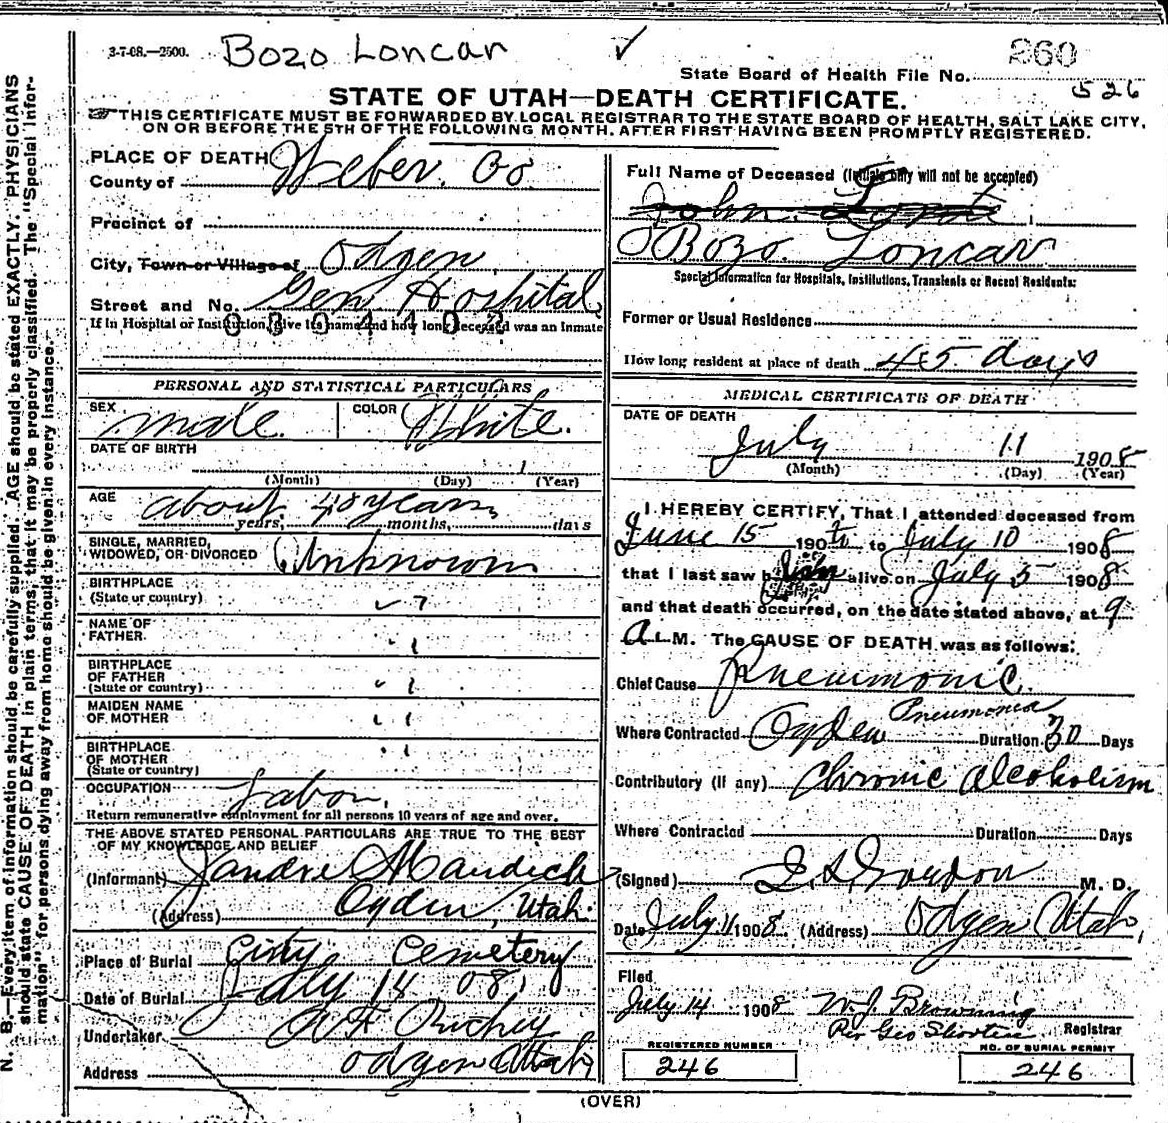 3-7-08.—2500. Bozo Loncar ✓
260
State Board of Health File No. 526
STATE OF UTAH—DEATH CERTIFICATE.
THIS CERTIFICATE MUST BE FORWARDED BY LOCAL REGISTRAR TO THE STATE BOARD OF HEALTH, SALT LAKE CITY,
ON OR BEFORE THE 5TH OF THE FOLLOWING MONTH, AFTER FIRST HAVING BEEN PROMPTLY REGISTERED.
N. B.—Every item of information should be carefully supplied. AGE should be stated EXACTLY. PHYSICIANS
should state CAUSE OF DEATH in plain terms, that it may be properly classified. The "Special Infor-
mation" for persons dying away from home should be given in every instance.
PLACE OF DEATH
County of Weber. Co.
Precinct of
City, Town or Village of Odgen
Street and No. Gen Hospital
If in Hospital or Institution, give its name and how long deceased was an inmate
PERSONAL AND STATISTICAL PARTICULARS
SEX male. COLOR White.
DATE OF BIRTH
(Month) (Day) (Year)
AGE about 48 years
years, months, days
SINGLE, MARRIED,
WIDOWED, OR DIVORCED Unknown
BIRTHPLACE
(State or country)
NAME OF
FATHER
BIRTHPLACE
OF FATHER
(State or country)
MAIDEN NAME
OF MOTHER
BIRTHPLACE
OF MOTHER
(State or country)
OCCUPATION Labor.
Return remunerative employment for all persons 10 years of age and over.
THE ABOVE STATED PERSONAL PARTICULARS ARE TRUE TO THE BEST
OF MY KNOWLEDGE AND BELIEF
(Informant) Mandich
(Address) Ogden, Utah.
Place of Burial City Cemetery
Date of Burial July 14 08.
Undertaker Richey
Address Odgen Utah
Full Name of Deceased (Initials only will not be accepted)
John
Bozo. Loncar
Special Information for Hospitals, Institutions, Transients or Recent Residents:
Former or Usual Residence
How long resident at place of death 45 days
MEDICAL CERTIFICATE OF DEATH
DATE OF DEATH
July 11 1908
(Month) (Day) (Year)
I HEREBY CERTIFY, That I attended deceased from
June 15 190 to July 10 1908
that I last saw him alive on July 5 1908
and that death occurred, on the date stated above, at 9
A. M. The CAUSE OF DEATH was as follows:
Chief Cause Pneumonic
Pneumonia
Where Contracted Ogden Duration 30 Days
Contributory (if any) Chronic alcoholism
Where Contracted Duration Days
(Signed) Gordon M. D.
Date July 11 1908. (Address) Odgen Utah,
Filed
July 14 1908 W. J. Browning
Per Geo Registrar
REGISTERED NUMBER
246
NO. OF BURIAL PERMIT
246
(OVER)